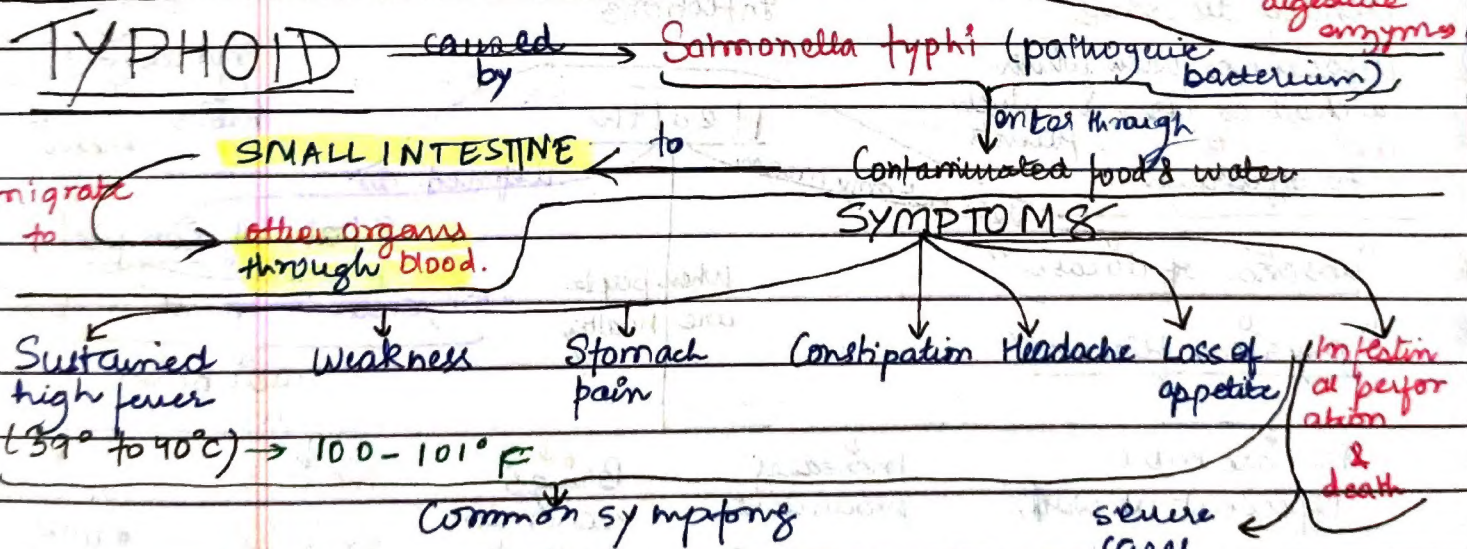 digestive
enzymes
TYPHOID caused by → Salmonella typhi (pathogenic
bacterium)
enter through
SMALL INTESTINE ← to Contaminated food & water
migrate
to
other organs
through blood.
SYMPTOMS
Sustained
high fever
(39° to 40°C) → 100-101°F
Weakness
Stomach
pain
Constipation
Headache
Loss of
appetite
Intestin
al perfor
ation
&
death
Common symptoms
severe